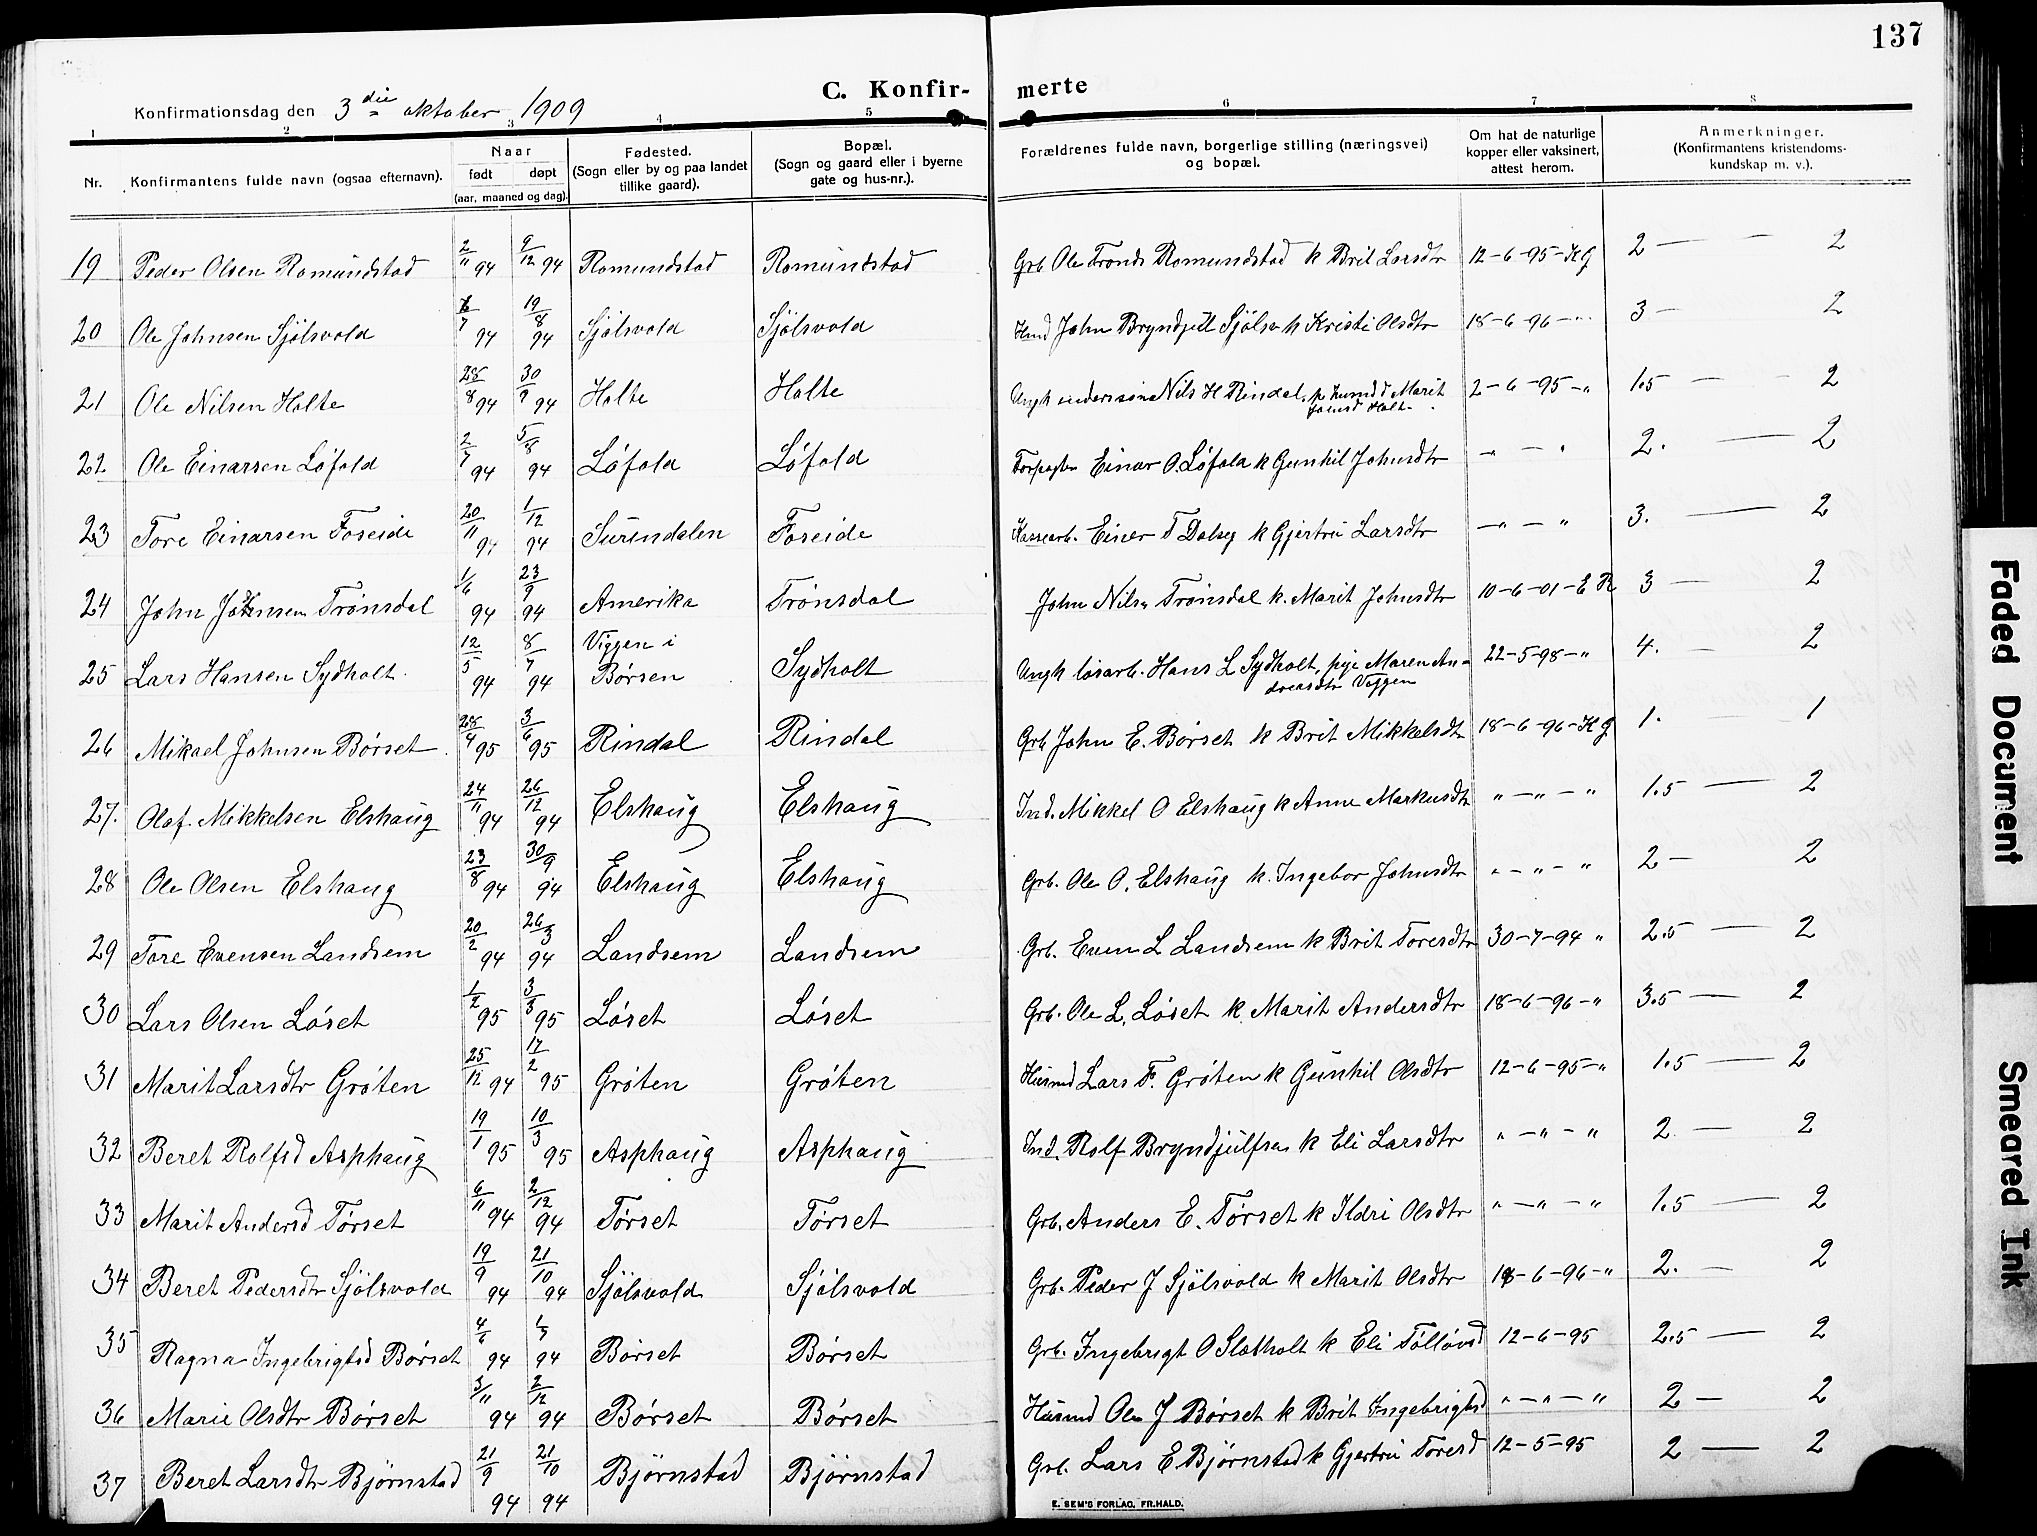 137
C. Konfir- merte
Konfirmationsdag den 3die oktober 1909
1 2 3 4 5 6 7 8
Nr. Konfirmantens fulde navn (ogsaa efternavn). Naar født døpt (aar, maaned og dag). Fødested. (Sogn eller by og paa landet tillike gaard). Bopæl. (Sogn og gaard eller i byerne gate og hus-nr.). Forældrenes fulde navn, borgerlige stilling (næringsvei) og bopæl. Om hat de naturlige kopper eller vaksinert, attest herom. Anmerkninger. (Konfirmantens kristendoms- kundskap m. v.).
19 Peder Olsen Romundstad 2/11 94 9/12 94 Romundstad Romundstad Grb Ole Tronds Romundstad k Brit Larsdtr 12-6-95-KG 2 — 2
20 Ole Johnsen Sjölsvold 6/7 94 19/8 94 Sjölsvold Sjölsvold Hmd John Bryndjul Sjölsv k Kristi Olsdtr 18-6-96-" 3 — 2
21 Ole Nilsen Holte 28/8 94 30/9 94 Holte Holte Ungk Nils H Rindal, p Marit Johnsd Holt 2-6-95-" 1.5 — 2
22 Ole Einarsen Löfald 2/7 94 5/8 94 Löfald Löfald Forpagter Einar O. Löfald k Gunhil Johnsdtr " — " 2. — 2
23 Tore Einarsen Foseide 20/11 94 1/12 94 Surendalen Foseide Einer T Dalseg k Gjertru Larsdtr " — " 3. — 2
24 John Johnsen Trönsdal 1/6 94 23/9 94 Amerika Trönsdal John Nils. Trönsdal k. Marit Johnsdtr 10-6-01-E R 3 — 2
25 Lars Hansen Sydholt 12/5 94 8/7 94 Viggen i Börsen Sydholt Ungk lösarb. Hans L Sydholt, pige Maren Andreasdtr Viggen 22-5-98-" 4. — 2
26 Mikael Johnsen Börset 28/4 95 3/6 95 Rindal Rindal Grb John E. Börset k Brit Mikkelsdtr 18-6-96-KG 1. — 1
27. Olaf Mikkelsen Elshaug 24/11 94 26/12 94 Elshaug Elshaug Ind. Mikkel O Elshaug k Anne Markusdtr " — " — " 1.5 — 2
28 Ole Olsen Elshaug 23/8 94 30/9 94 Elshaug Elshaug Grb. Ole O. Elshaug k. Ingebor Johnsdtr " — " — " 2 — 2
29 Tore Evensen Landsem 20/2 94 26/3 94 Landsem Landsem Grb. Even L Landsem k Brit Toresdtr 30-7-94 " 2.5 — 2
30 Lars Olsen Löset 1/2 95 3/3 95 Löset Löset Grb. Ole L. Löset k. Marit Andersdtr 18-6-96-" 3.5 — 2
31 Marit Larsdtr Gröten 25/12 94 17/2 95 Gröten Gröten Husmd Lars F. Gröten k Gunhil Olsdtr 12-6-95-" 1.5 — 2
32 Beret Rolfsd Asphaug 19/1 95 10/3 95 Asphaug Asphaug Ind. Rolf Bryndjulfsen k Eli Larsdtr " — " — " 2 — 2
33 Marit Andersd Törset 6/11 94 2/12 94 Törset Törset Grb. Anders E. Törset k Ildri Olsdtr " — " — " 1.5 — 2
34 Beret Pedersdtr Sjölsvold 19/9 94 21/10 94 Sjölsvold Sjölsvold Grb. Peder J Sjölsvold k Marit Olsdtr 18-6-96-" 2. — 2
35 Ragna Ingebrigtsd Börset 4/6 94 1/7 94 Börset Börset Grb. Ingebrigt O Slatholt k Eli 12-6-95 2.5 — 2
36 Marie Olsdtr Börset 3/11 94 2/12 94 Börset Börset Husmd Ole J Börset k Brit Ingebrigtsd " — " — " 2 — 2
37 Beret Larsdtr Björnstad 21/9 94 21/10 94 Björnstad Björnstad Grb. Lars E Björnstad k Gjertru Toresd 12-5-95 2 — 2
E. SEM'S FORLAG, FR.HALD.
Faded Document
Smeared Ink